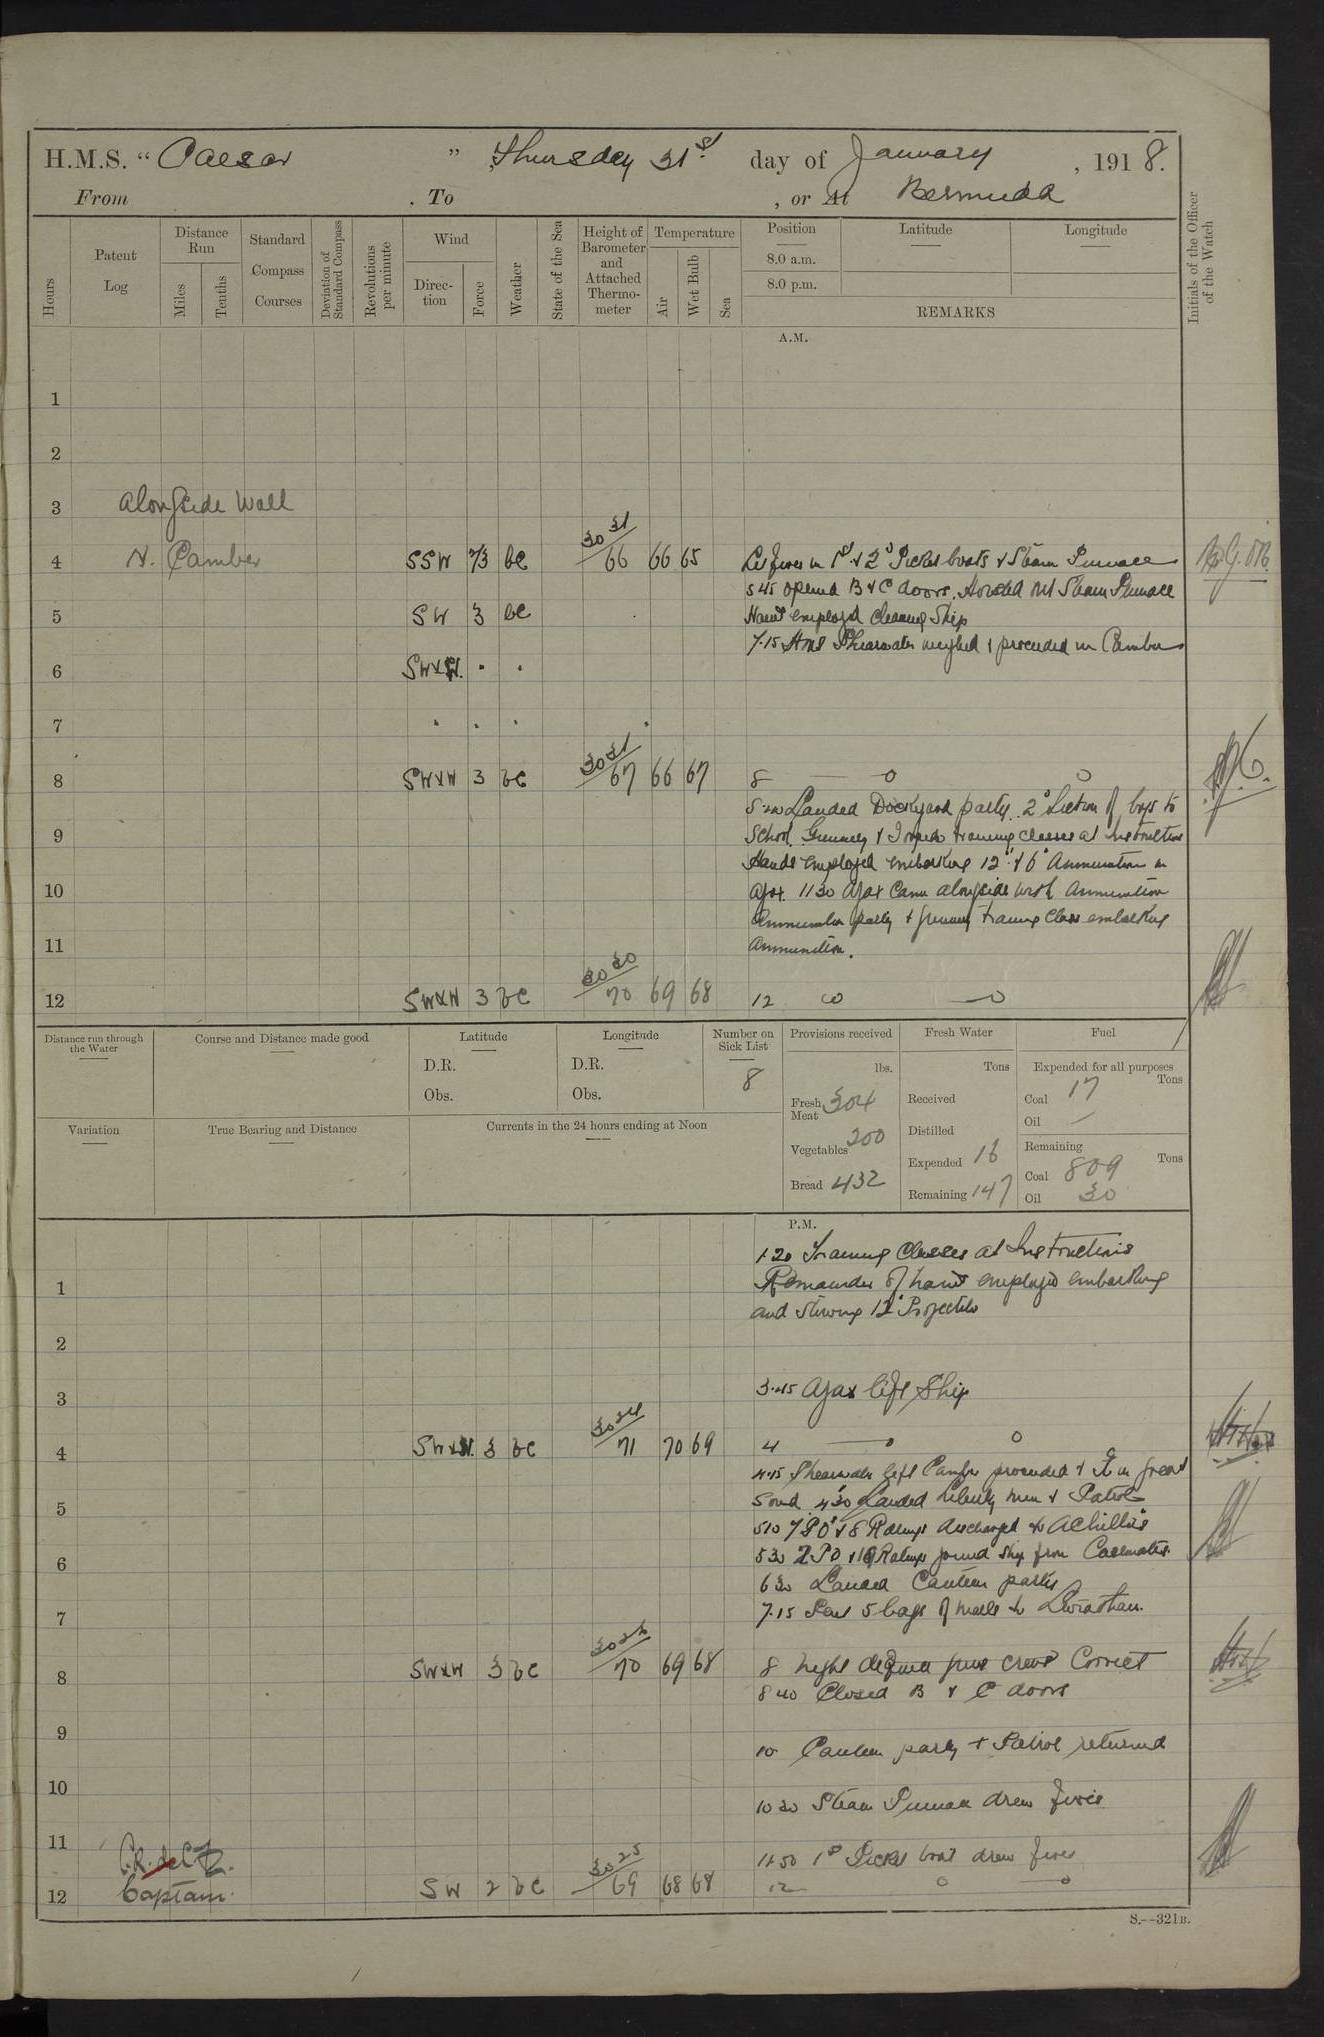 H.M.S. "Caesar", Thursday 31st day of January, 1918.
From . To , or At Bermuda
Hours
Patent Log
Distance Run
Miles
Tenths
Standard Compass Courses
Deviation of Standard Compass
Revolutions per minute
Wind
Direction
Force
Weather
State of the Sea
Height of Barometer and Attached Thermometer
Temperature
Air
Wet Bulb
Sea
Position
8.0 a.m.
8.0 p.m.
Latitude
Longitude
REMARKS
Initials of the Officer of the Watch
A.M.
1
2
3 alongside Wall
4 N. Camber SSW 2/3 bc 30 31/66 66 65 Lit fires in 1st & 2d Picket boats & Steam Pinnace
5 45 opened B & C doors. Hoisted out Steam Pinnace
5 SW 3 bc Hands employed Cleaning Ship
7.15 HMS Shearwater weighed & proceeded in Camber
6 SWxW. . .
7 . . .
8 SWxW 3 bc 30 31/67 66 67 8
Landed Dockyard party. 2d Section of boys to
9 School. Gunnery & Torpedo training classes at Instruction
Hands employed embarking 12" & 6" Ammunition in
10 Ajax. 11 30 Ajax Came alongside with Ammunition
Ammunition party & gunnery training Class embarking
11 Ammunition.
12 SWxW 3 bc 30 30/70 69 68 12
Distance run through the Water
Course and Distance made good
Latitude
D.R.
Obs.
Longitude
D.R.
Obs.
Number on Sick List
8
Provisions received
lbs.
Fresh Meat 304
Vegetables 200
Bread 432
Fresh Water
Tons
Received
Distilled
Expended 16
Remaining 147
Fuel
Expended for all purposes
Tons
Coal 17
Oil —
Remaining
Tons
Coal 809
Oil 30
Variation
True Bearing and Distance
Currents in the 24 hours ending at Noon
P.M.
1.20 Training Classes at Instructions
1 Remainder of hands employed embarking
and stowing 12" Projectiles
2
3 3.45 Ajax left Ship
4 SWxW. 3 bc 30 24/71 70 69 4
4.15 Shearwater left Camber proceeded & in Great
5 Sound 4.30 Landed Liberty men & Patrol
5 10 7 PO's & 8 Ratings discharged to Achilles
6 5 30 2 PO & Ratings joined ship from Casemates.
6 30 Landed Canteen party
7 7.15 Sent 5 bags of mails to Leviathan.
8 SWxW 3 bc 70 69 68 8 Night defence guns crews Correct
8 40 Closed B & C doors
9
10 Canteen party & Patrol returned
10
10 30 Steam Pinnace drew fires
11 11.50 1st Picket boat drew fires
12 Captain. SW 2 bc 30 25/69 68 68 12
S.—321B.